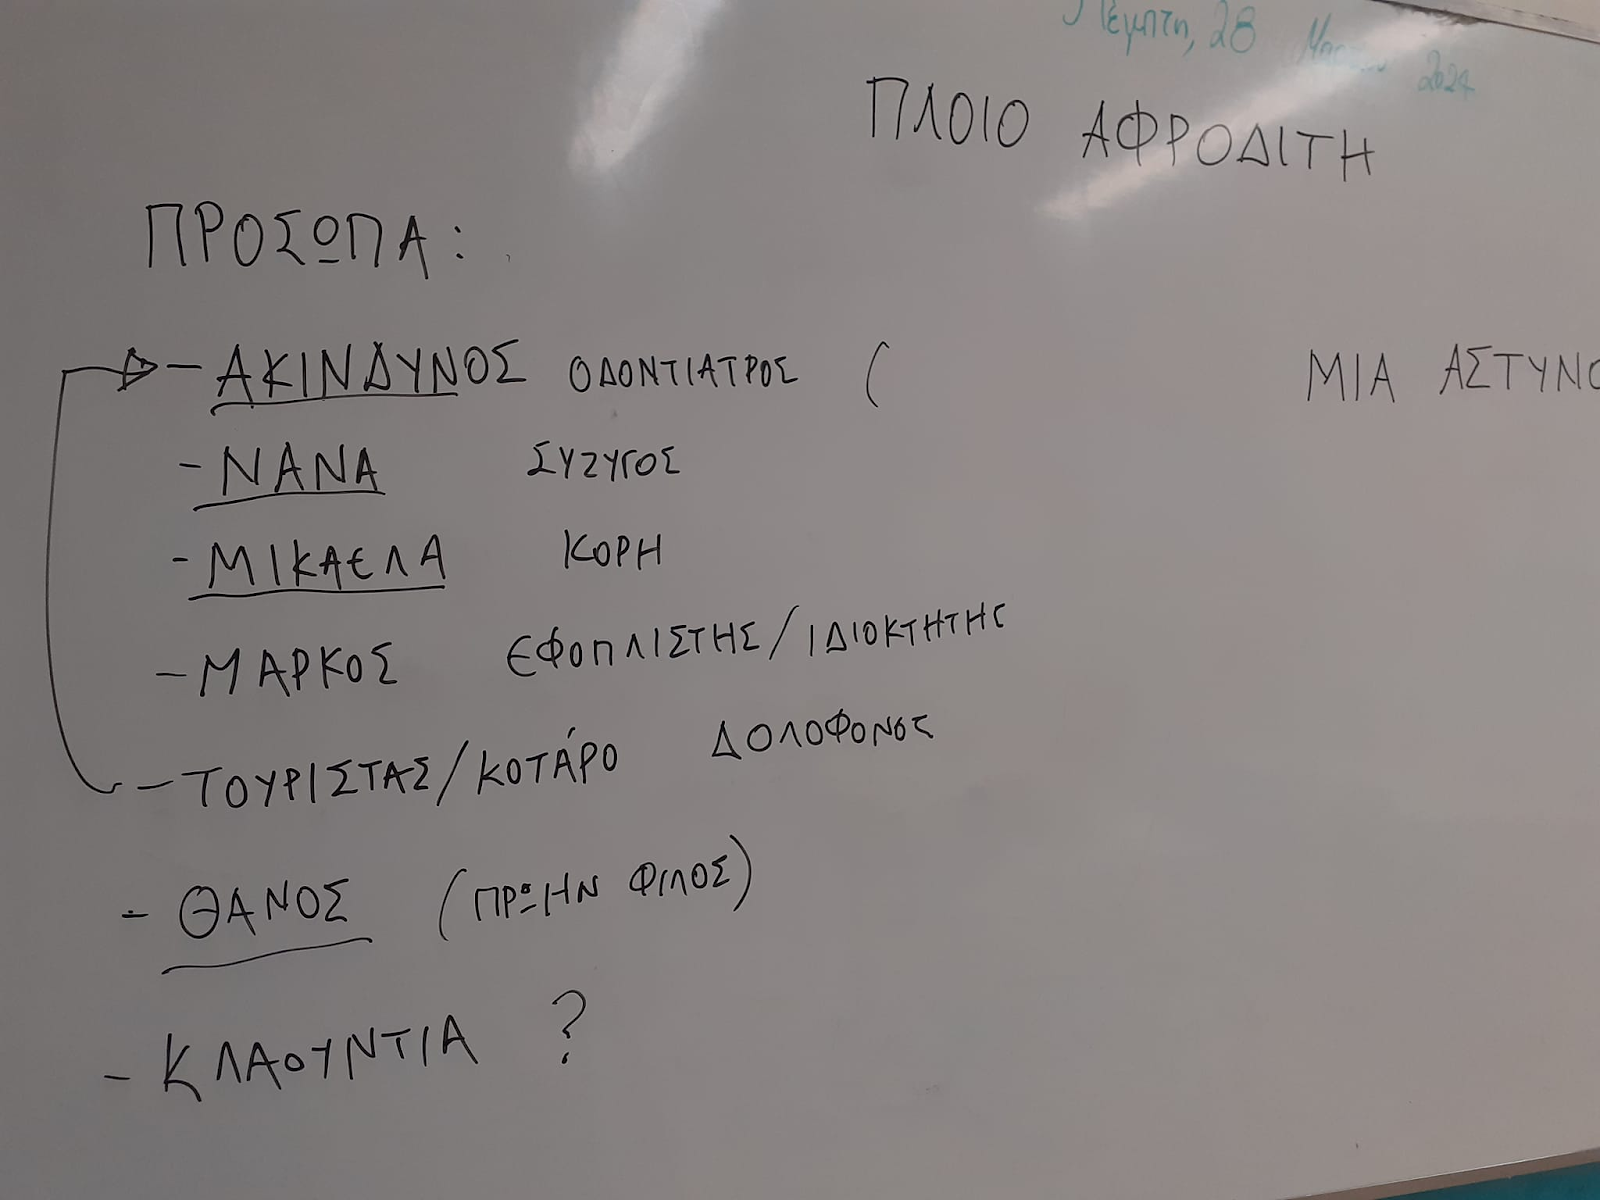 Πέμπτη, 28 Μαρτίου 2024
ΠΛΟΙΟ ΑΦΡΟΔΙΤΗ
ΠΡΟΣΩΠΑ:
- ΑΚΙΝΔΥΝΟΣ ΟΔΟΝΤΙΑΤΡΟΣ (
ΜΙΑ ΑΣΤΥΝΟ
- ΝΑΝΑ ΣΥΖΥΓΟΣ
- ΜΙΚΑΕΛΑ ΚΟΡΗ
- ΜΑΡΚΟΣ ΕΦΟΠΛΙΣΤΗΣ/ΙΔΙΟΚΤΗΤΗΣ
- ΤΟΥΡΙΣΤΑΣ/ΚΟΤΑΡΟ ΔΟΛΟΦΟΝΟΣ
- ΘΑΝΟΣ (ΠΡΩΗΝ ΦΙΛΟΣ)
- ΚΛΑΟΥΝΤΙΑ ?